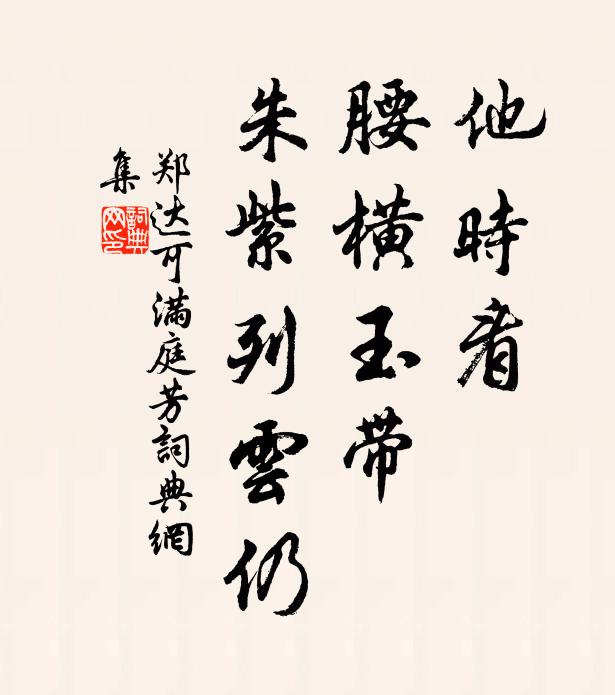 他時看
腰橫玉帶
朱紫列雲仍
郑达可满庭芳詞典網
集
詞典
网印